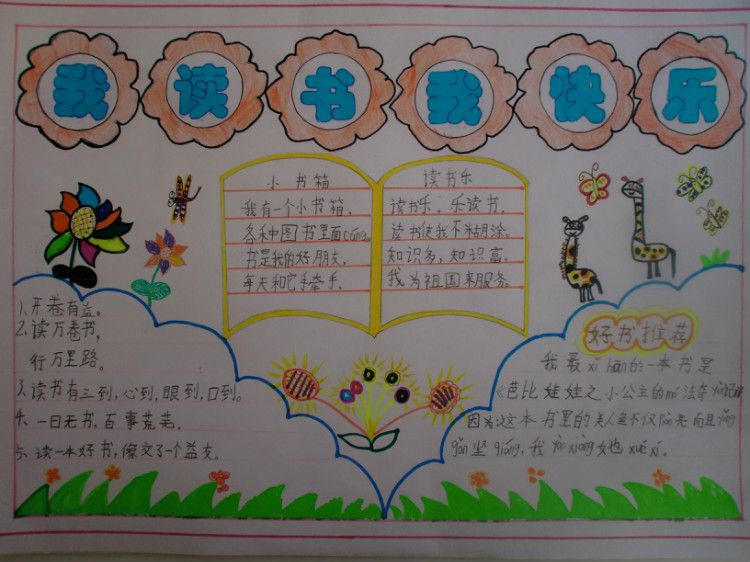 我读书我快乐
小书箱
我有一个小书箱，
各种图书里面cáng。
书是我的好朋友，
每天和它手牵手。
读书乐
读书乐，乐读书，
读书使我不糊涂。
知识多，知识富，
我为祖国来服务。
1、开卷有益。
2、读万卷书，
行万里路。
3、读书有三到，心到，眼到，口到。
4、一日无书，百事荒芜。
5、读一本好书，像交了一个益友。
好书推荐
我最xǐ huān的一本书是
《芭比娃娃之小公主的mó法奇
因为这本书里的美人鱼不仅piào亮而且
坚qiáng，我yào xiàng她 xué xí。